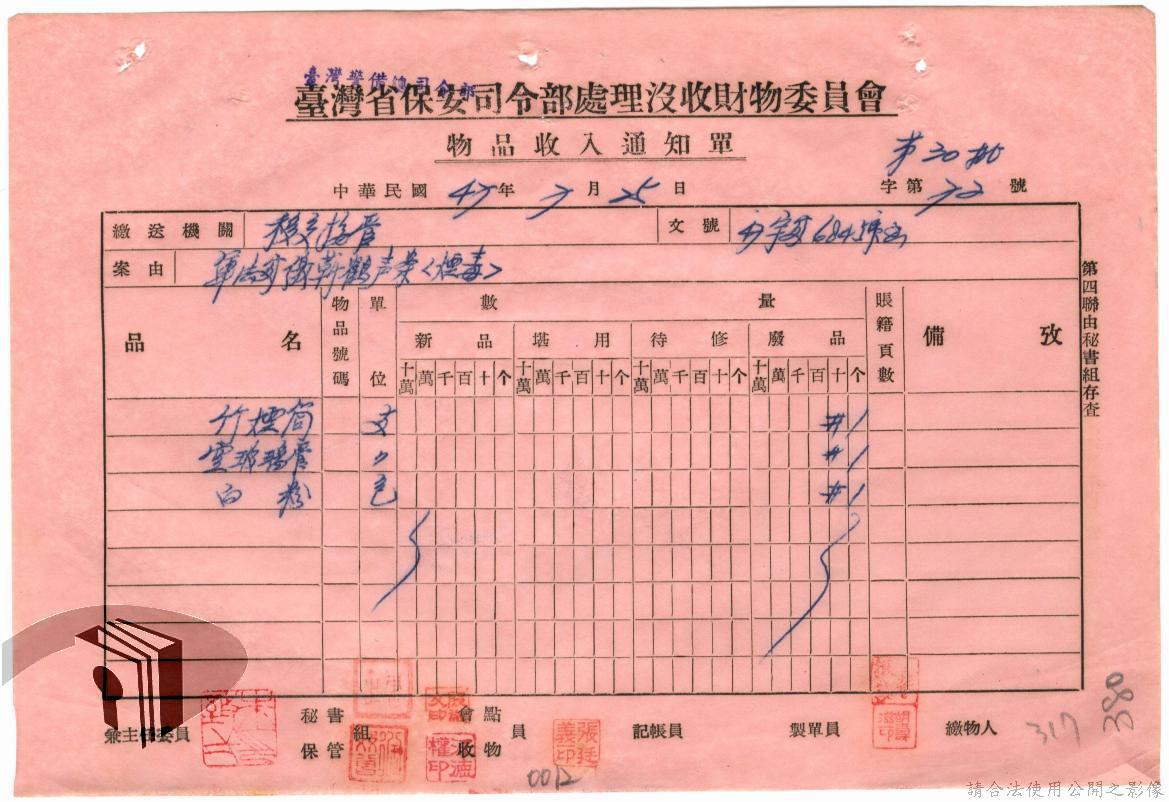 臺灣警備總司令部
臺灣省保安司令部處理沒收財物委員會
物品收入通知單
第30批
中華民國47年7月25日 字第72號
繳送機關 移交接管 文號
案由
品名 物品號碼 單位 數量 賬籍頁數 備攷
新品 堪用 待修 廢品
十萬 萬 千 百 十 个 十萬 萬 千 百 十 个 十萬 萬 千 百 十 个 十萬 萬 千 百 十 个
竹煙筒 支 #1
玻璃管 〃 #1
白粉 包 #1
第四聯由秘書組存查
兼主任委員 秘書保管組 會點收物員 記帳員 製單員 繳物人
張廷義印
317
380
0012
請合法使用公開之影像